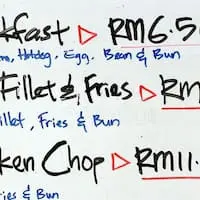 kfast ▷ RM6.5
m, Hotdog, Egg, Bean & Bun
Fillet & Fries ▷ RM
illet, Fries & Bun
ken Chop ▷ RM11.
ries & Bun